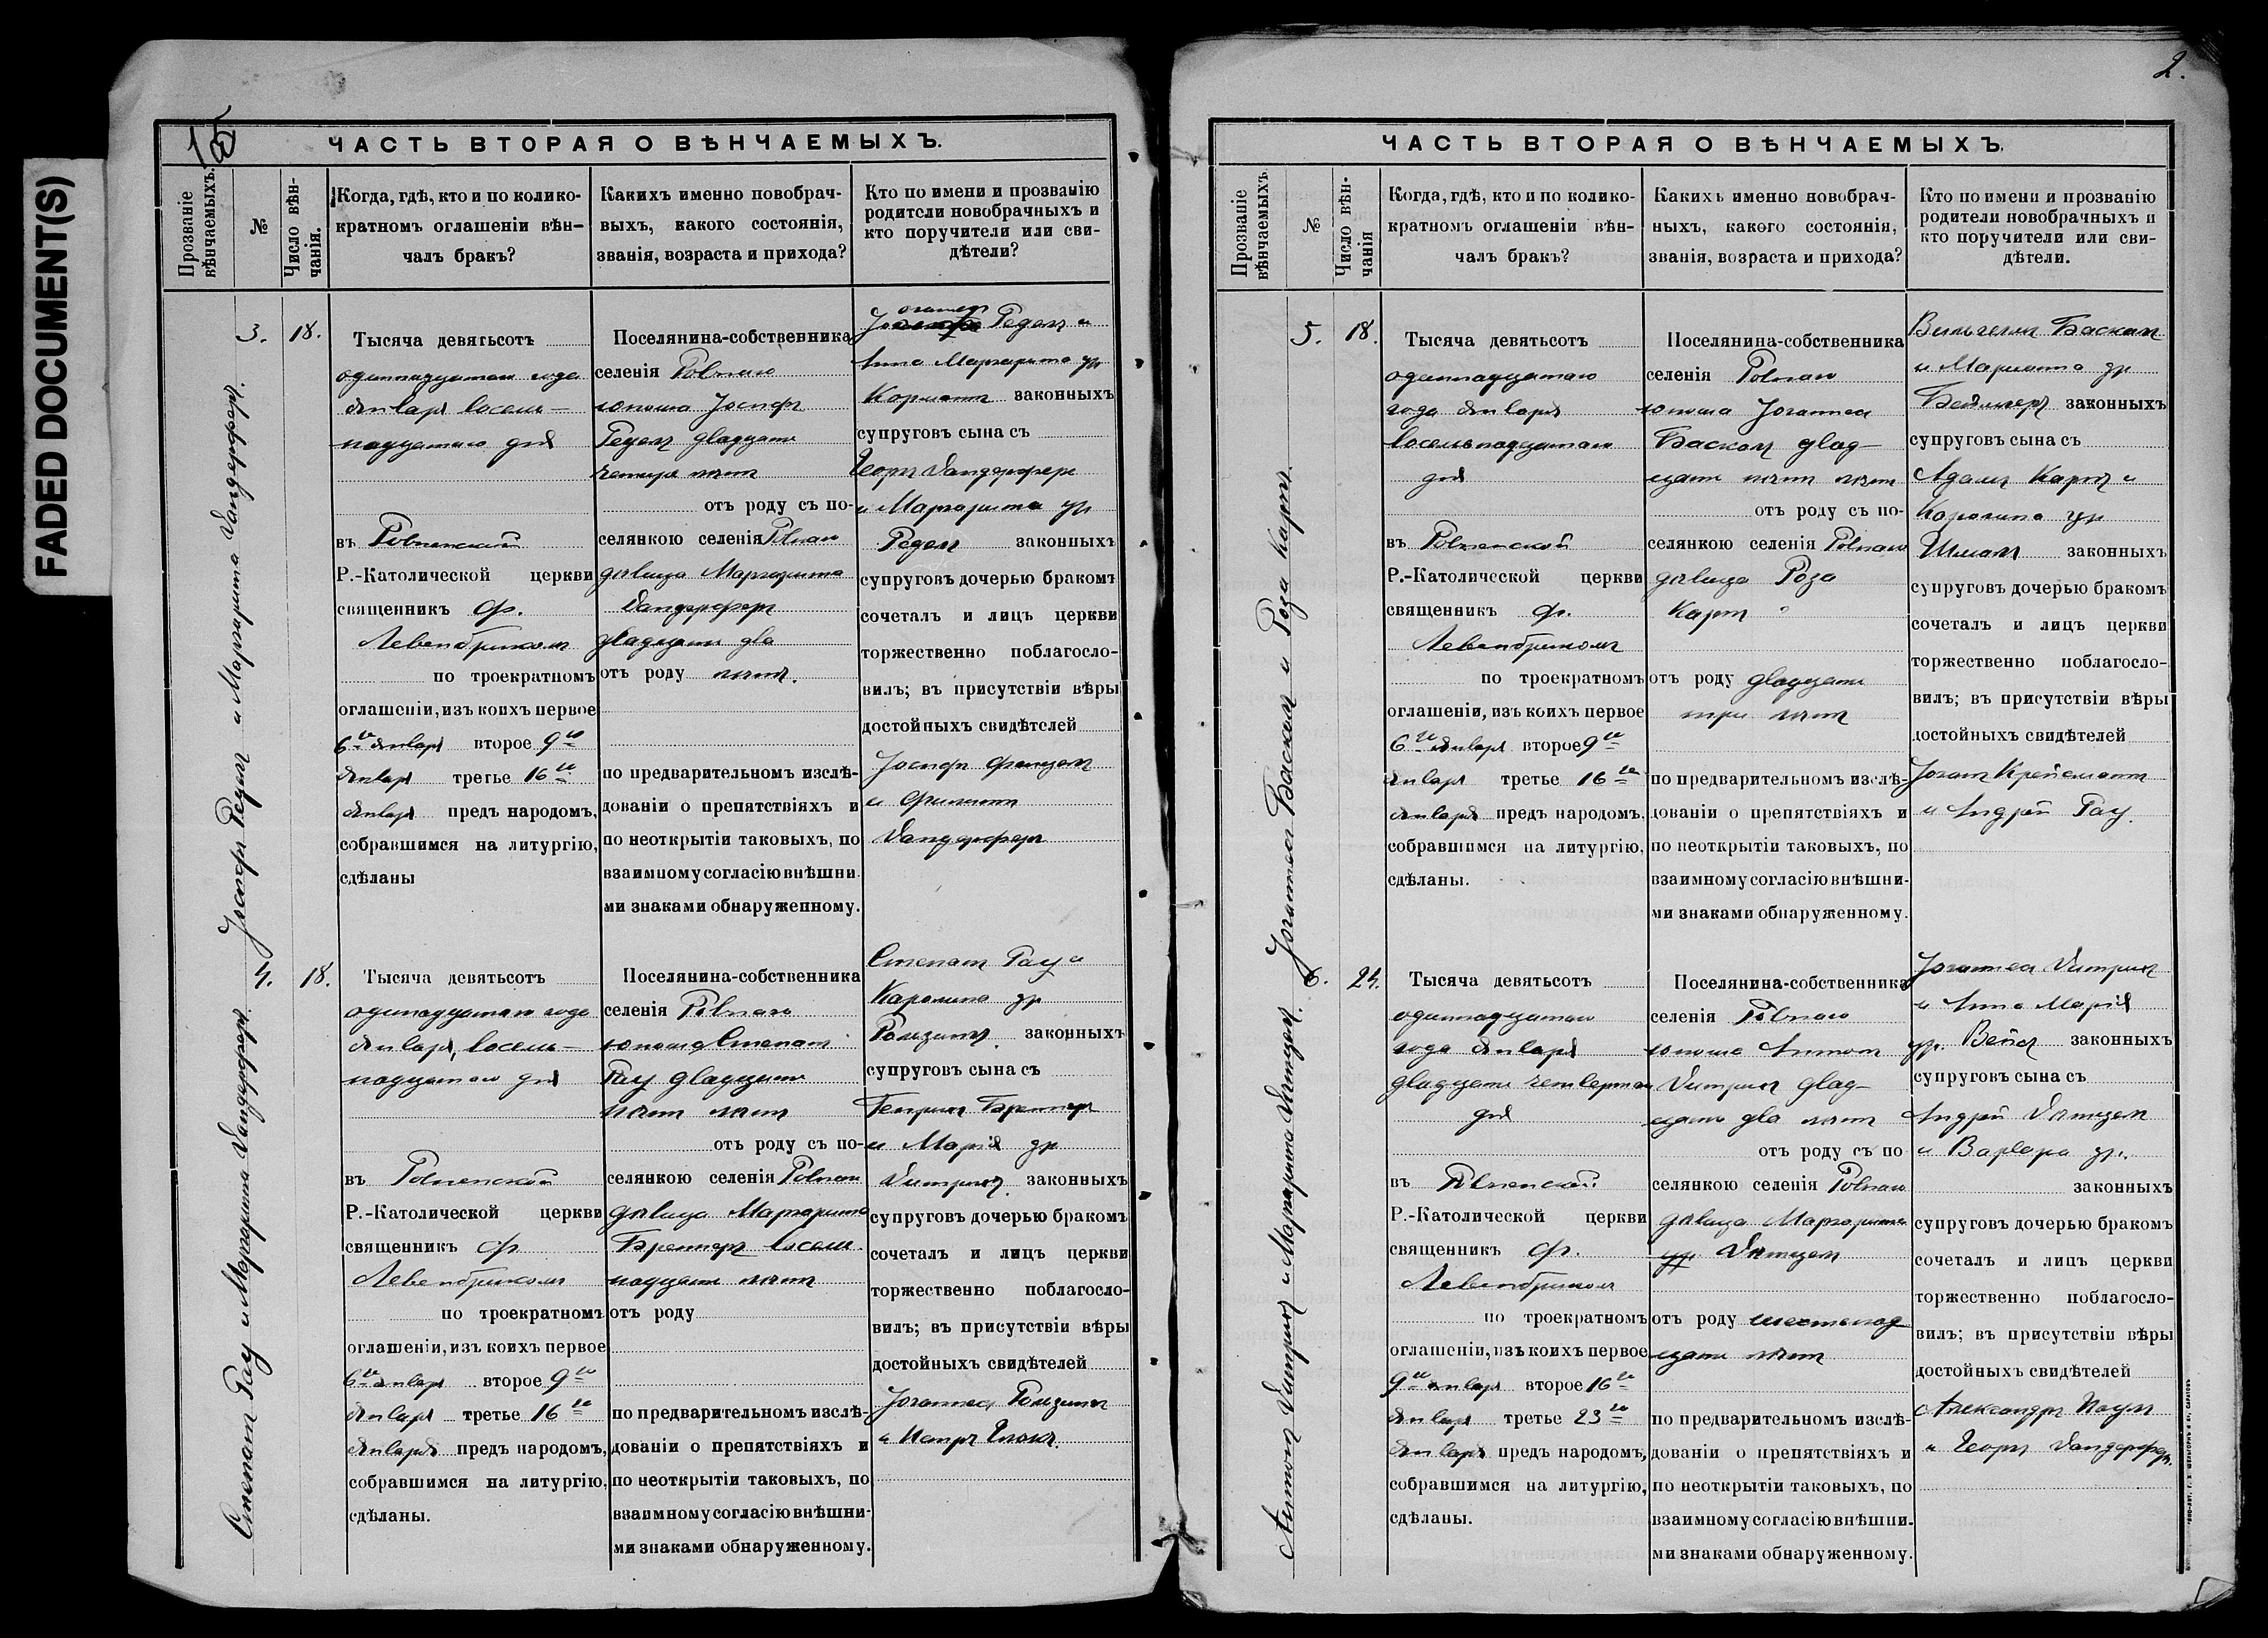 FADED DOCUMENT(S)
ЧАСТЬ ВТОРАЯ О ВѢНЧАЕМЫХЪ.
Прозваніе вѣнчаемыхъ.
№
Число вѣнчанія.
Когда, гдѣ, кто и по колико-
кратномъ оглашеніи вѣн-
чалъ бракъ?
Какихъ именно новобрач-
ныхъ, какого состоянія,
званія, возраста и прихода?
Кто по имени и прозванію
родители новобрачныхъ и
кто поручители или сви-
дѣтели?
Іосифъ Редел и Маргарита
3.
18.
Тысяча девятьсотъ
одиннадцатаго года
января восем-
надцатаго дня
въ Ровненской
Р.-Католической церкви
священникъ Ф.
Левенбрикъ
по троекратномъ
оглашеніи, изъ коихъ первое
6го января второе 9го
января третье 16го
января предъ народомъ,
собравшимся на литургію,
сдѣланы
Поселянина-собственника
селенія Ровнаго
юноша Іосифъ
Редел двадцати
четыре лѣтъ
отъ роду съ по-
селянкою селенія Ровнаго
дѣвица Маргарита
двадцати два
отъ роду лѣтъ.
по предварительномъ изслѣ-
дованіи о препятствіяхъ и
по неоткрытіи таковыхъ, по
взаимному согласію внѣшни-
ми знаками обнаруженному.
Редел и
Анна Маргарита ур
законныхъ
супруговъ сына съ
Георг
и Маргарита ур
Редел законныхъ
супруговъ дочерью бракомъ
сочеталъ и лицъ церкви
торжественно поблагосло-
вилъ; въ присутствіи вѣры
достойныхъ свидѣтелей
Іосифъ
и Филипп
Степанъ Рау и Маргарита
4.
18.
Тысяча девятьсотъ
одиннадцатаго года
января, восем-
надцатаго дня
въ Ровненской
Р.-Католической церкви
священникъ Ф
Левенбрикъ
по троекратномъ
оглашеніи, изъ коихъ первое
6го января второе 9го
января третье 16го
января предъ народомъ,
собравшимся на литургію,
сдѣланы.
Поселянина-собственника
селенія Ровнаго
юноша Степанъ
Рау двадцати
пять лѣтъ
отъ роду съ по-
селянкою селенія Ровнаго
дѣвица Маргарита
Бреннеръ восем-
надцати лѣтъ
отъ роду
по предварительномъ изслѣ-
дованіи о препятствіяхъ и
по неоткрытіи таковыхъ, по
взаимному согласію внѣшни-
ми знаками обнаруженному.
Степанъ Рау и
Каролина ур
законныхъ
супруговъ сына съ
Генрих Бреннеръ
и Марія ур
Дитрихъ законныхъ
супруговъ дочерью бракомъ
сочеталъ и лицъ церкви
торжественно поблагосло-
вилъ; въ присутствіи вѣры
достойныхъ свидѣтелей
Іоганнес
и Петръ Глокъ.
2.
ЧАСТЬ ВТОРАЯ О ВѢНЧАЕМЫХЪ.
Прозваніе вѣнчаемыхъ.
№
Число вѣнчанія
Когда, гдѣ, кто и по колико-
кратномъ оглашеніи вѣн-
чалъ бракъ?
Какихъ именно новобрач-
ныхъ, какого состоянія,
званія, возраста и прихода?
Кто по имени и прозванію
родители новобрачныхъ и
кто поручители или сви-
дѣтели.
Іоганнес Баскал и Роза Карт.
5.
18.
Тысяча девятьсотъ
одиннадцатаго
года января
восемьнадцатаго
дня
въ Ровненской
Р.-Католической церкви
священникъ Ф.
Левенбрикъ
по троекратномъ
оглашеніи, изъ коихъ первое
6го января второе 9го
января третье 16го
января предъ народомъ,
собравшимся на литургію,
сдѣланы.
Поселянина-собственника
селенія Ровнаго
юноша Іоганнес
Баскал двад-
цати пять лѣтъ
отъ роду съ по-
селянкою селенія Ровнаго
дѣвица Роза
Карт
отъ роду двадцати
три лѣтъ
по предварительномъ изслѣ-
дованіи о препятствіяхъ и
по неоткрытіи таковыхъ, по
взаимному согласію внѣшни-
ми знаками обнаруженному.
Вильгелм Баскал
и Марианна ур
законныхъ
супруговъ сына съ
Адамъ Карт и
Каролина ур
законныхъ
супруговъ дочерью бракомъ
сочеталъ и лицъ церкви
торжественно поблагосло-
вилъ; въ присутствіи вѣры
достойныхъ свидѣтелей
и Андрей Рау.
Антонъ Дитрихъ и Маргарита
6.
24.
Тысяча девятьсотъ
одиннадцатаго
года января
двадцати четвертаго
дня
въ Ровненской
Р.-Католической церкви
священникъ Ф.
Левенбрикъ
по троекратномъ
оглашеніи, изъ коихъ первое
9го января второе 16го
января третье 23го
января предъ народомъ,
собравшимся на литургію,
сдѣланы.
Поселянина-собственника
селенія Ровнаго
юноша Антонъ
Дитрихъ двад-
цати два лѣтъ
отъ роду съ по
селянкою селенія Ровнаго
дѣвица Маргарита
отъ роду шестьнад-
цати лѣтъ
по предварительномъ изслѣ-
дованіи о препятствіяхъ и
по неоткрытіи таковыхъ, по
взаимному согласію внѣшни-
ми знаками обнаруженному.
Іоганнес Дитрихъ
и Анна Марія
ур. Вейс законныхъ
супруговъ сына съ
Андрей
и Варвара ур.
законныхъ
супруговъ дочерью бракомъ
сочеталъ и лицъ церкви
торжественно поблагосло-
вилъ; въ присутствіи вѣры
достойныхъ свидѣтелей
Александръ
и Георг